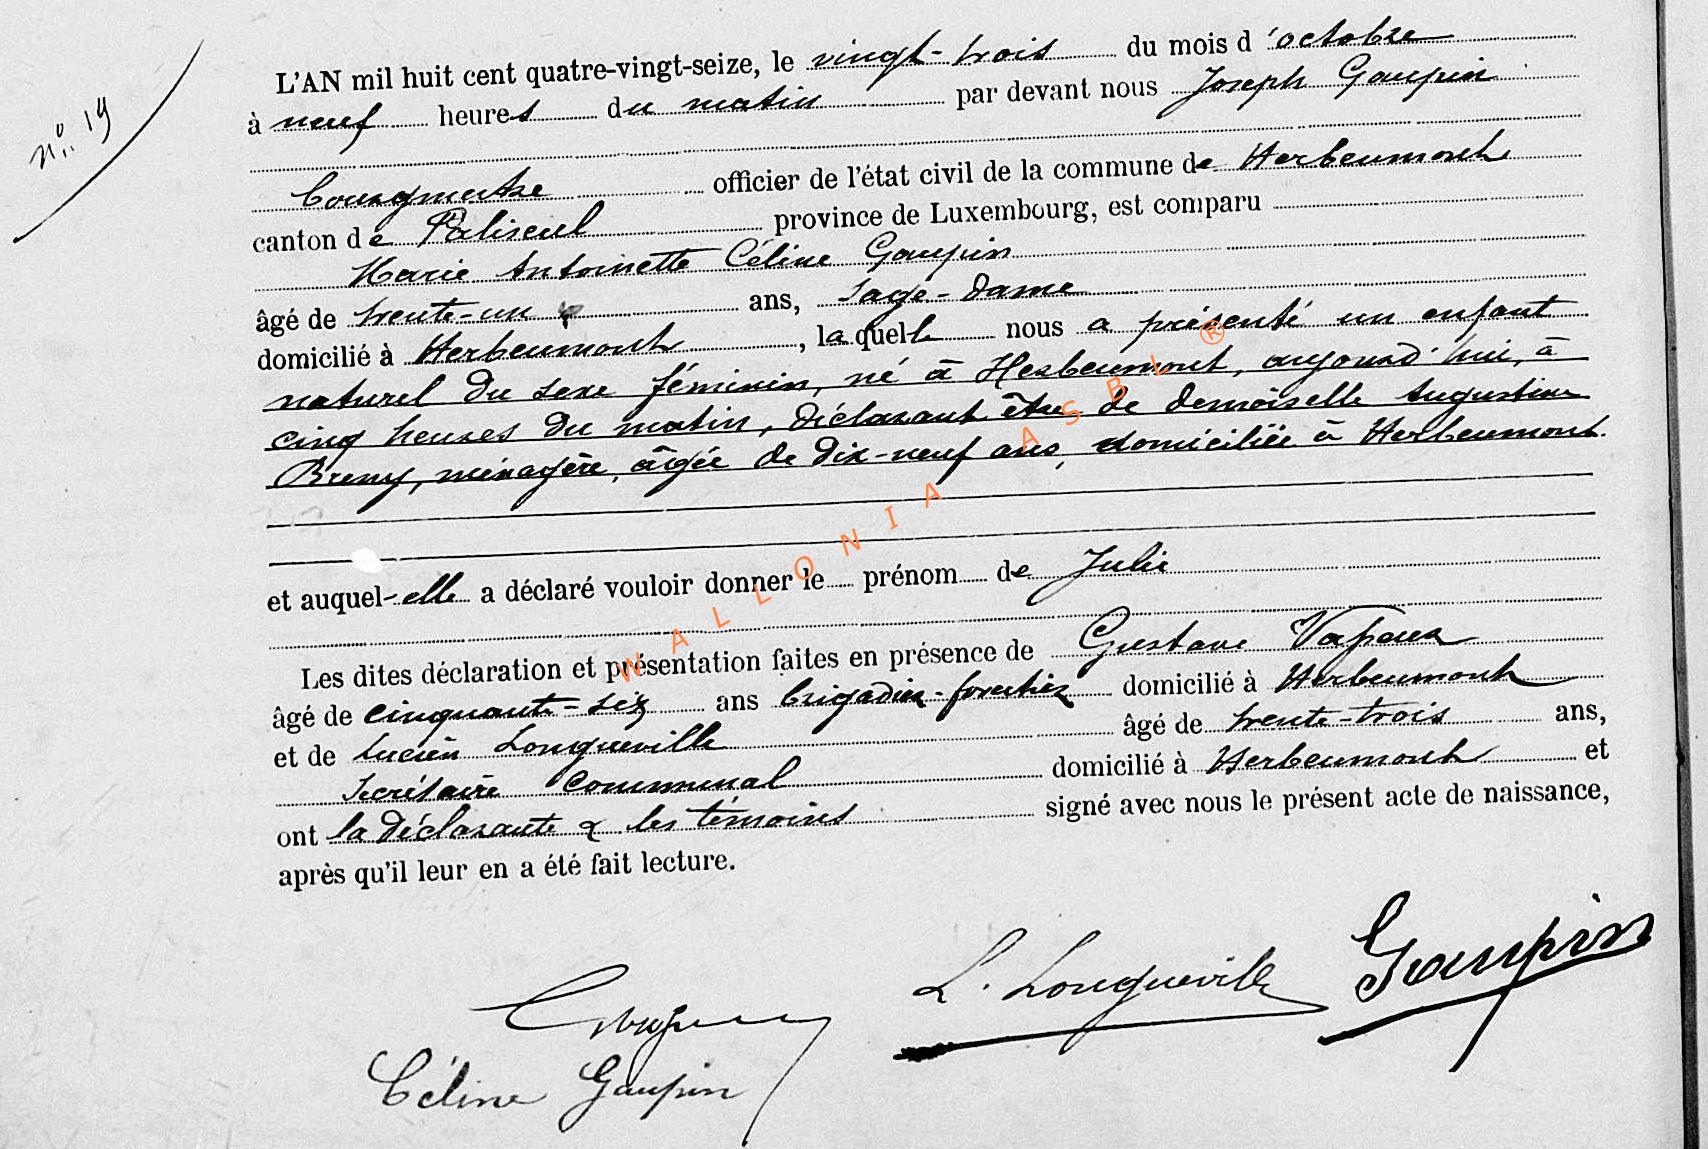 n° 19
L'AN mil huit cent quatre-vingt-seize, le vingt-trois du mois d'octobre
à neuf heures du matin par devant nous Joseph Gaupin
bourgmestre officier de l'état civil de la commune de Herbeumont
canton de Paliseul province de Luxembourg, est comparu
Marie Antoinette Céline Gaupin
âgé de trente-un ans, sage-dame
domicilié à Herbeumont, laquelle nous a présenté un enfant
naturel du sexe féminin, né à Herbeumont, aujourd'hui, à
cinq heures du matin, déclarant être de demoiselle Augustine
Breny, ménagère, âgée de dix-neuf ans, domiciliée à Herbeumont.
et auquel-elle a déclaré vouloir donner le prénom de Julie
Les dites déclaration et présentation faites en présence de Gustave Vapaux
âgé de cinquante-six ans brigadier-forestier domicilié à Herbeumont
et de Lucien Longueville âgé de trente-trois ans,
secrétaire communal domicilié à Herbeumont et
ont la déclarante & les témoins signé avec nous le présent acte de naissance,
après qu'il leur en a été fait lecture.
L. Longueville Gaupin
Céline Gaupin
WALLONIA ASBL ®